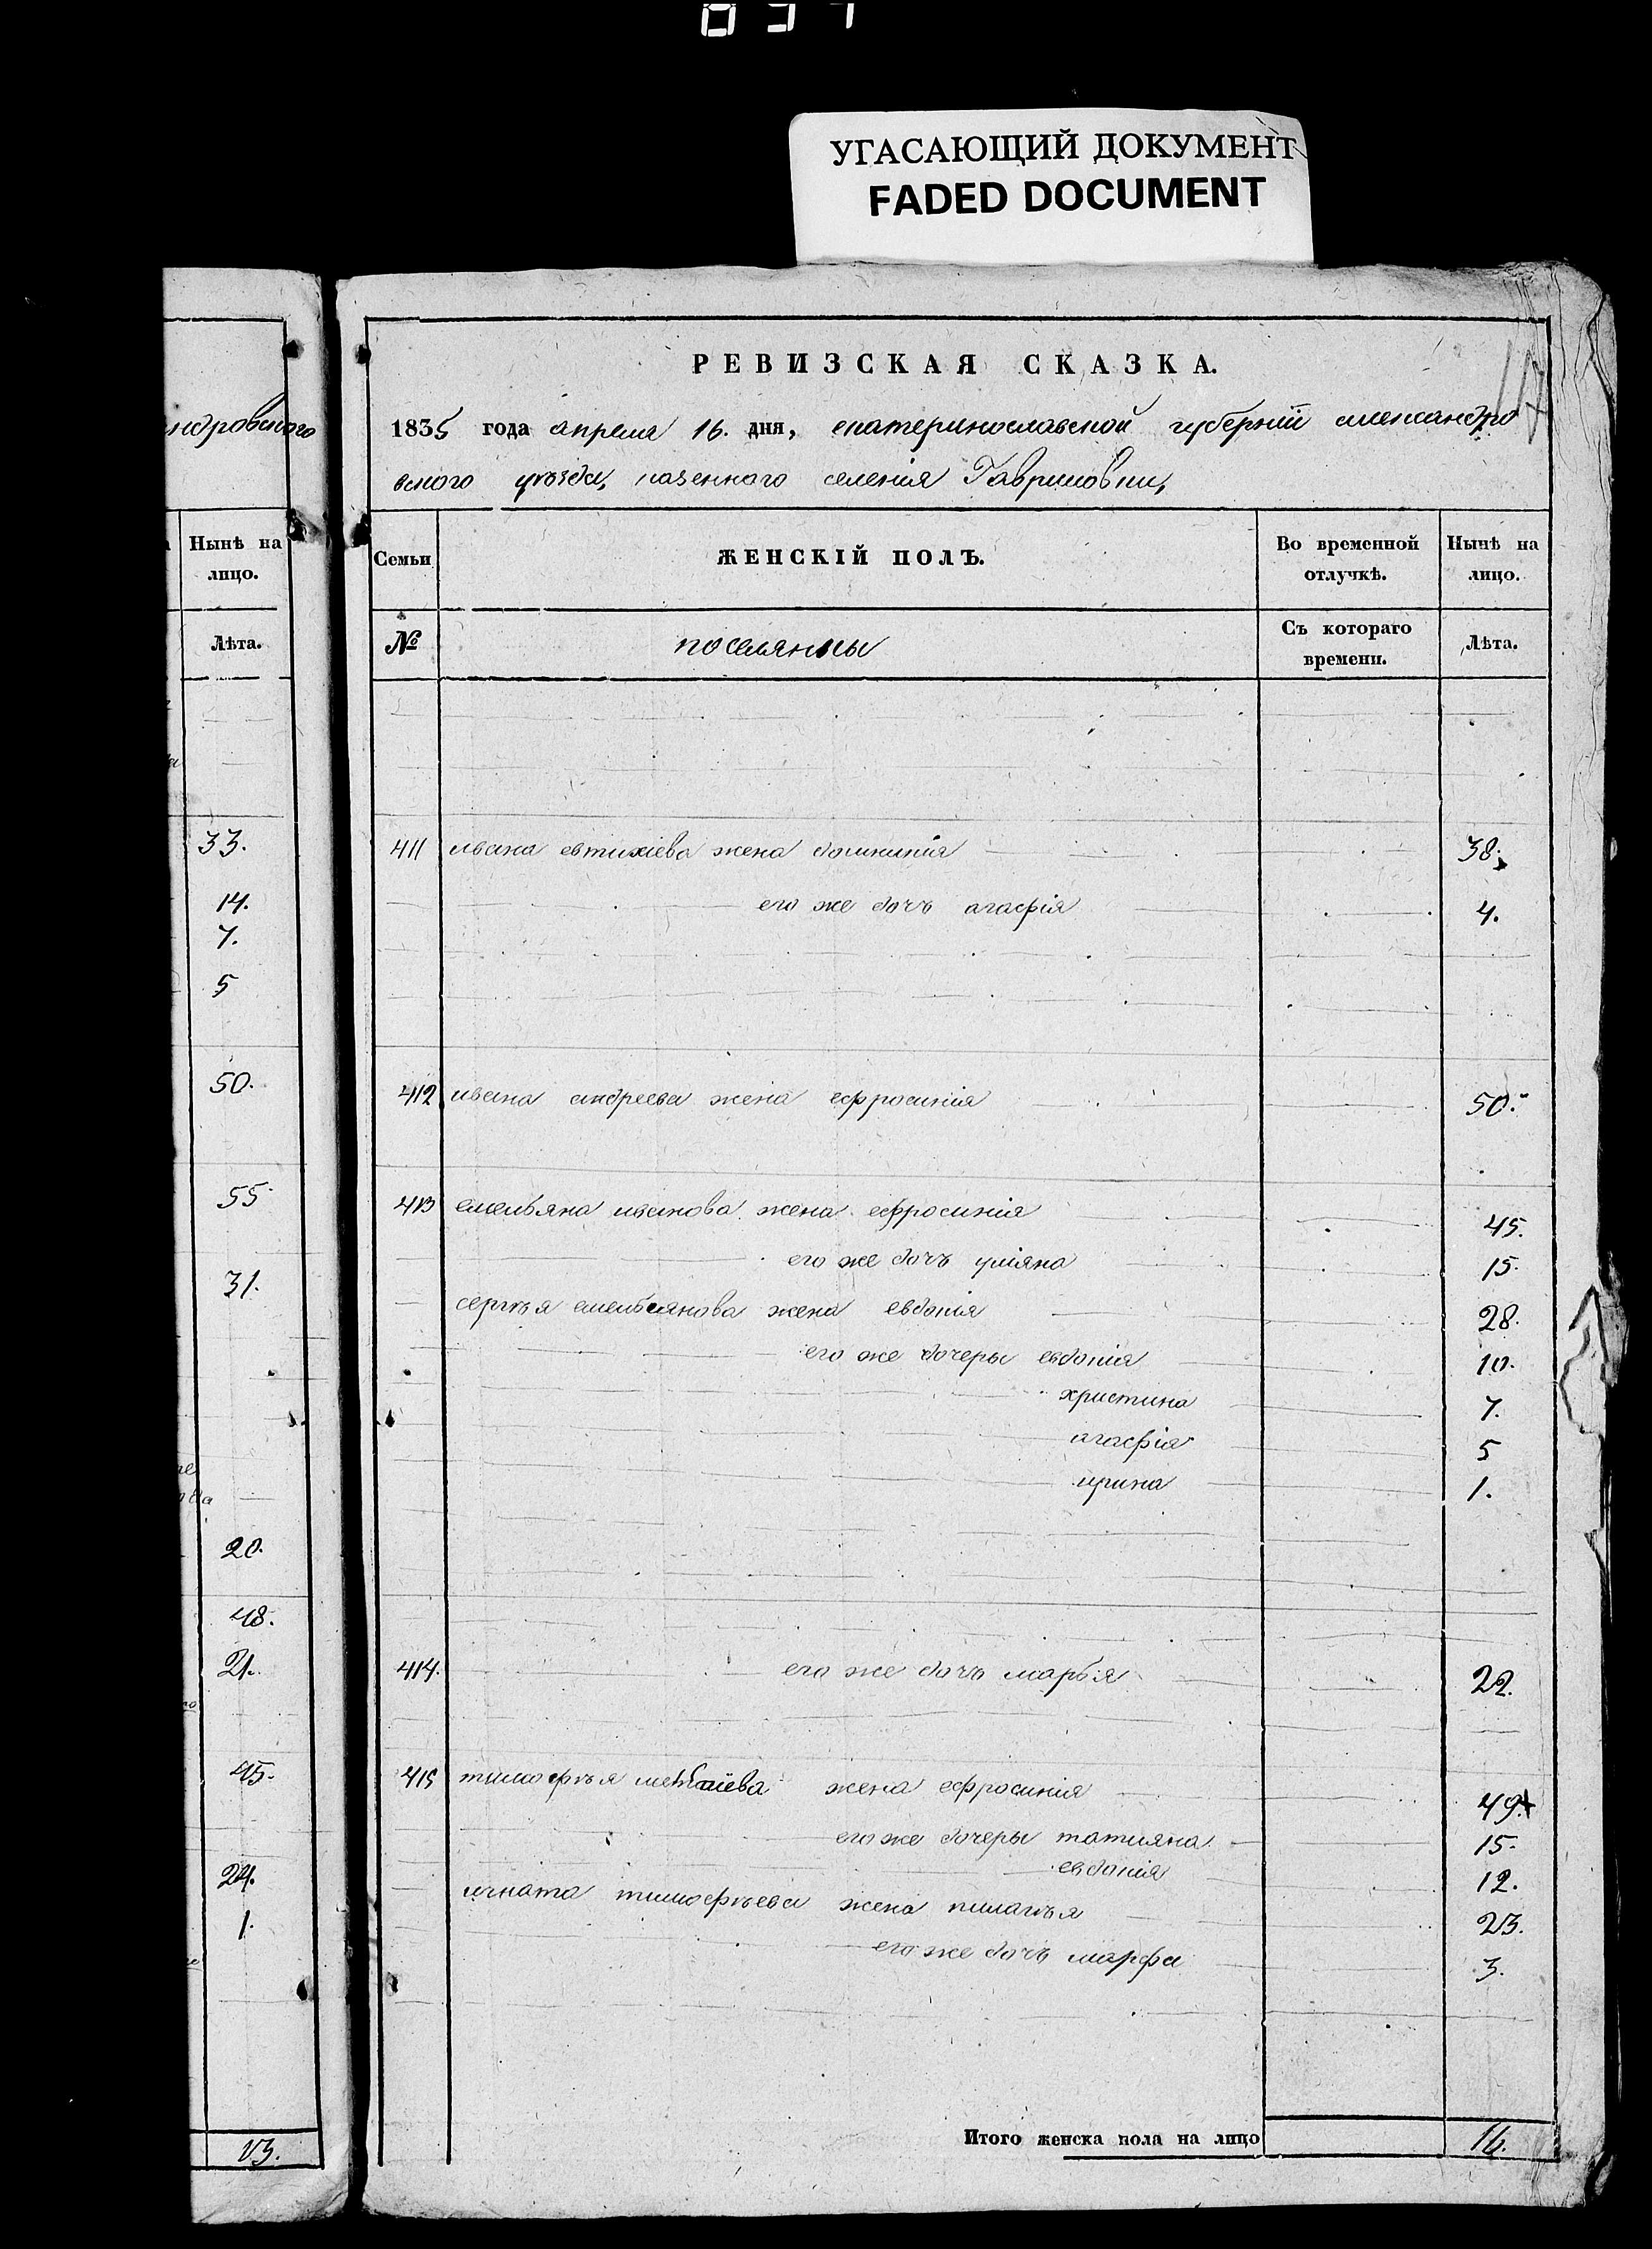 УГАСАЮЩИЙ ДОКУМЕНТ
FADED DOCUMENT
ндровского
Нынѣ на
лицо.
Лѣта.
33.
14.
7.
5
50.
55.
31.
20.
48.
21.
45.
24.
1.
13.
РЕВИЗСКАЯ СКАЗКА.
1835 года апреля 16. дня, екатеринославской губернїи александро
вского уѣзда, казенного селенія Гавриловки,
Семьи
ЖЕНСКІЙ ПОЛЪ.
Во временной
отлучкѣ.
Нынѣ на
лицо.
№
поселянки
Съ котораго
времени.
Лѣта.
411 ивана евтихіева жена домникія 38.
его же дочь агафія 4.
412 ивана андреева жена ефросинія 50.
413 емельяна иванова жена ефросинія 45.
его же дочь уліяна 15.
сергѣя емельянова жена евдокія 28.
его же дочеры евдокія 10.
христина 7.
агафія 5
ирина 1.
414. его же дочь марья 22.
415 тимофѣя жена ефросинія 49.
его же дочеры татияна 15.
евдокія 12.
игната тимофѣева жена пилагѣя 23.
его же дочь марфа 3.
Итого женска пола на лицо 16.